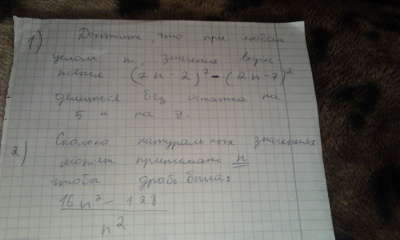 1) Докажите, что при любом
целом n, значение выра
жения (7n-2)²-(2n-7)²
делится без остатка на
5 и на 9.
2) Сколько натуральных значениях
может принимать n
чтобы дробь была:
16n²-128
n²